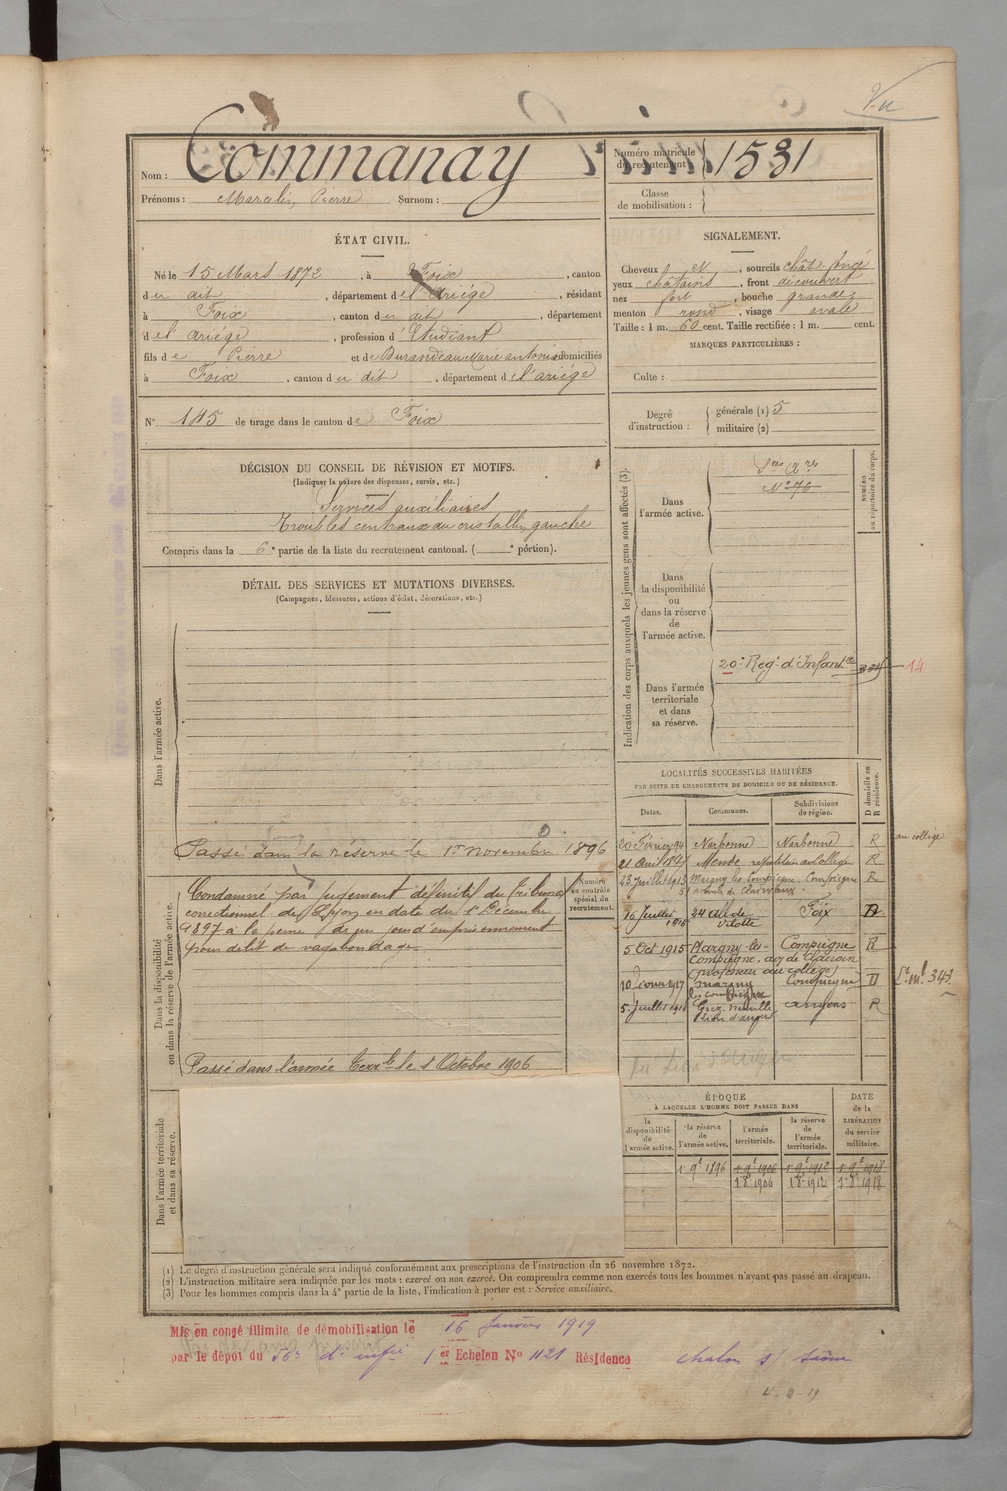 Vu
Nom : Commanay
Prénoms : Marcelin Pierre Surnom :
Numéro matricule du recrutement : 1531
Classe de mobilisation :
ÉTAT CIVIL.
Né le 15 Mars 1872, à Foix, canton
du dit, département de l'Ariége, résidant
à Foix, canton du dit, département
de l'Ariége, profession d'Etudiant
fils de Pierre et de Durandeau Marie antonia domiciliés
à Foix, canton du dit, département de l'ariége
N° 145 de tirage dans le canton de Foix
SIGNALEMENT.
Cheveux N, sourcils chât. foncé
yeux châtains, front découvert
nez fort, bouche grande
menton rond, visage ovale
Taille : 1 m. 60 cent. Taille rectifiée : 1 m. cent.
MARQUES PARTICULIÈRES :
Culte :
Degré d'instruction :
générale (1) 5
militaire (2)
DÉCISION DU CONSEIL DE RÉVISION ET MOTIFS.
(Indiquer la nature des dispenses, sursis, etc.)
Services auxiliaires
Troubles centraux du cristallin gauche
Compris dans la 6e partie de la liste du recrutement cantonal. ( e portion).
DÉTAIL DES SERVICES ET MUTATIONS DIVERSES.
(Campagnes, blessures, actions d'éclat, décorations, etc.)
Dans l'armée active.
Passé dans la réserve le 1er novembre 1896
Dans la disponibilité ou dans la réserve de l'armée active.
Condamné par jugement définitif du Tribunal
correctionnel de Lyon en date du 1er Décembre
1897 à la peine de un jour d'emprisonnement
pour délit de vagabondage.
Numéro au contrôle spécial du recrutement.
Passé dans l'armée Terrle le 1 Octobre 1906
Dans l'armée territoriale et dans sa réserve.
Indication des corps auxquels les jeunes gens sont affectés (3).
NUMÉRO au répertoire du corps.
Dans l'armée active.
Sces Xres
N° 76
Dans la disponibilité ou dans la réserve de l'armée active.
Dans l'armée territoriale et dans sa réserve.
20e Reg. d'Infant.ie
14
LOCALITÉS SUCCESSIVES HABITÉES
PAR SUITE DE CHANGEMENTS DE DOMICILE OU DE RÉSIDENCE.
Dates. Communes. Subdivisions de région. D domicile ou R résidence.
20 Février 94 Narbonne Narbonne R au collège
21 Avril 1897 Mende répétiteur au Collège R
23 Juillet 1913 Margny les Compiègne Compiègne R
16 Juillet 1915 34 All. de Vilotte Foix D
5 Oct 1915 Margny-les-Compiègne Compiègne R
(professeur au collège)
10 1917 Margny les Compiègne Compiègne D
5 Juillet 1918 Grez-Neuville Angers R
ÉPOQUE
À LAQUELLE L'HOMME DOIT PASSER DANS
la disponibilité de l'armée active.
la réserve de l'armée active.
l'armée territoriale.
la réserve de l'armée territoriale.
DATE de la LIBÉRATION du service militaire.
1 9bre 1896 1 9bre 1906 1 9bre 1912 1 9bre 1918
1 8 1906 1 8 1912 1 8 1918
(1) Le degré d'instruction générale sera indiqué conformément aux prescriptions de l'instruction du 26 novembre 1872.
(2) L'instruction militaire sera indiquée par les mots : exercé ou non exercé. On comprendra comme non exercés tous les hommes n'ayant pas passé au drapeau.
(3) Pour les hommes compris dans la 4e partie de la liste, l'indication à porter est : Service auxiliaire.
Mis en congé illimité de démobilisation le 16 Janvier 1919
par le dépôt du 56e d'infie 1er Echelon N° 1121 Résidence Chalon s/ Saône
4-2-19